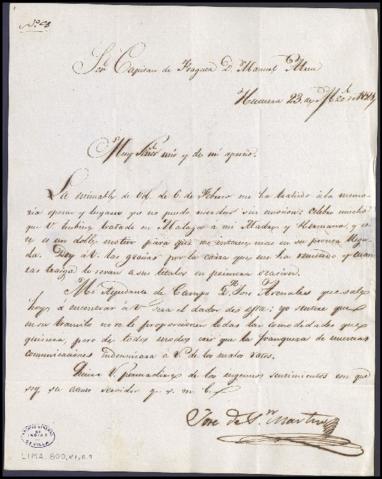 Sor. Capitan de Fragata D. Manuel
Huaura 23 de
Muy Señor mio y de mi aprecio.
La estimable de Vd. de 6 de Febrero me ha traido á la memo-
ria epocas y lugares que no puedo recordar sin emocion: Celebro mucho
que V. hubiese tratado en Malaga a mi Madre y Hermana, y
es un doble motivo para que me interese mas en su pronta
Doy á V. las gracias por la caxa que me ha remitido y
cartas traiga le seran a sus titulos en primera ocasion.
Mi Ayudante de Campo D. José Arenales que sale
hoy á encontrar á V. será el dador de esta: yo sentiré que
en su transito no se le proporcionen todas las comodidades que
quisiera, pero de todos modos creo que la franqueza de nuestras
comunicaciones indemnizará á V. de los malos ratos.
V. de los sinceros sentimientos con que
soy su atento servidor q. s. m. b.
José de Sn. Martin
ARCHIVO GENERAL DE INDIAS SEVILLA
LIMA, 800,